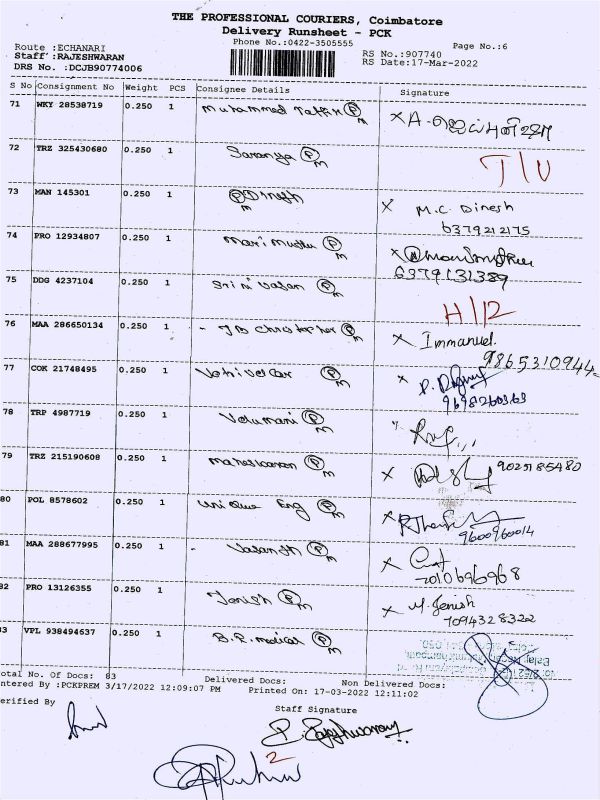 THE PROFESSIONAL COURIERS, Coimbatore
Delivery Runsheet - PCK
Phone No.:0422-3505555
Page No.:6
Route :ECHANARI
Staff :RAJESHWARAN
DRS No. :DCJB90774006
RS No.:907740
RS Date:17-Mar-2022
S No Consignment No Weight PCS Consignee Details Signature
71 WKY 28538719 0.250 1 Muhammed
72 TRZ 325430680 0.250 1 Saranya Pm T/U
73 MAN 145301 0.250 1 Pm Dinesh X M.C. Dinesh
6379212175
74 PRO 12934807 0.250 1 Mari muthu Pm X
6379131389
75 DDG 4237104 0.250 1 Srinivasan Pm
76 MAA 286650134 0.250 1 - JB Christopher Pm X Immanuel.
9865310944
77 COK 21748495 0.250 1 Vetrivel Pm X
9698260363
78 TRP 4987719 0.250 1 Velumani Pm
79 TRZ 215190608 0.250 1 Maheswaran Pm X 9025185480
80 POL 8578602 0.250 1 unique Eng Pm X
9600960014
81 MAA 288677995 0.250 1 - Vasanth Pm X
7010696968
82 PRO 13126355 0.250 1 Jenish Pm X M. Jenish
7094328322
83 VPL 938494637 0.250 1 B.R. medical Pm
otal No. Of Docs: 83 Delivered Docs: Non Delivered Docs:
ntered By :PCKPREM 3/17/2022 12:09:07 PM Printed On: 17-03-2022 12:11:02
erified By
Staff Signature
2